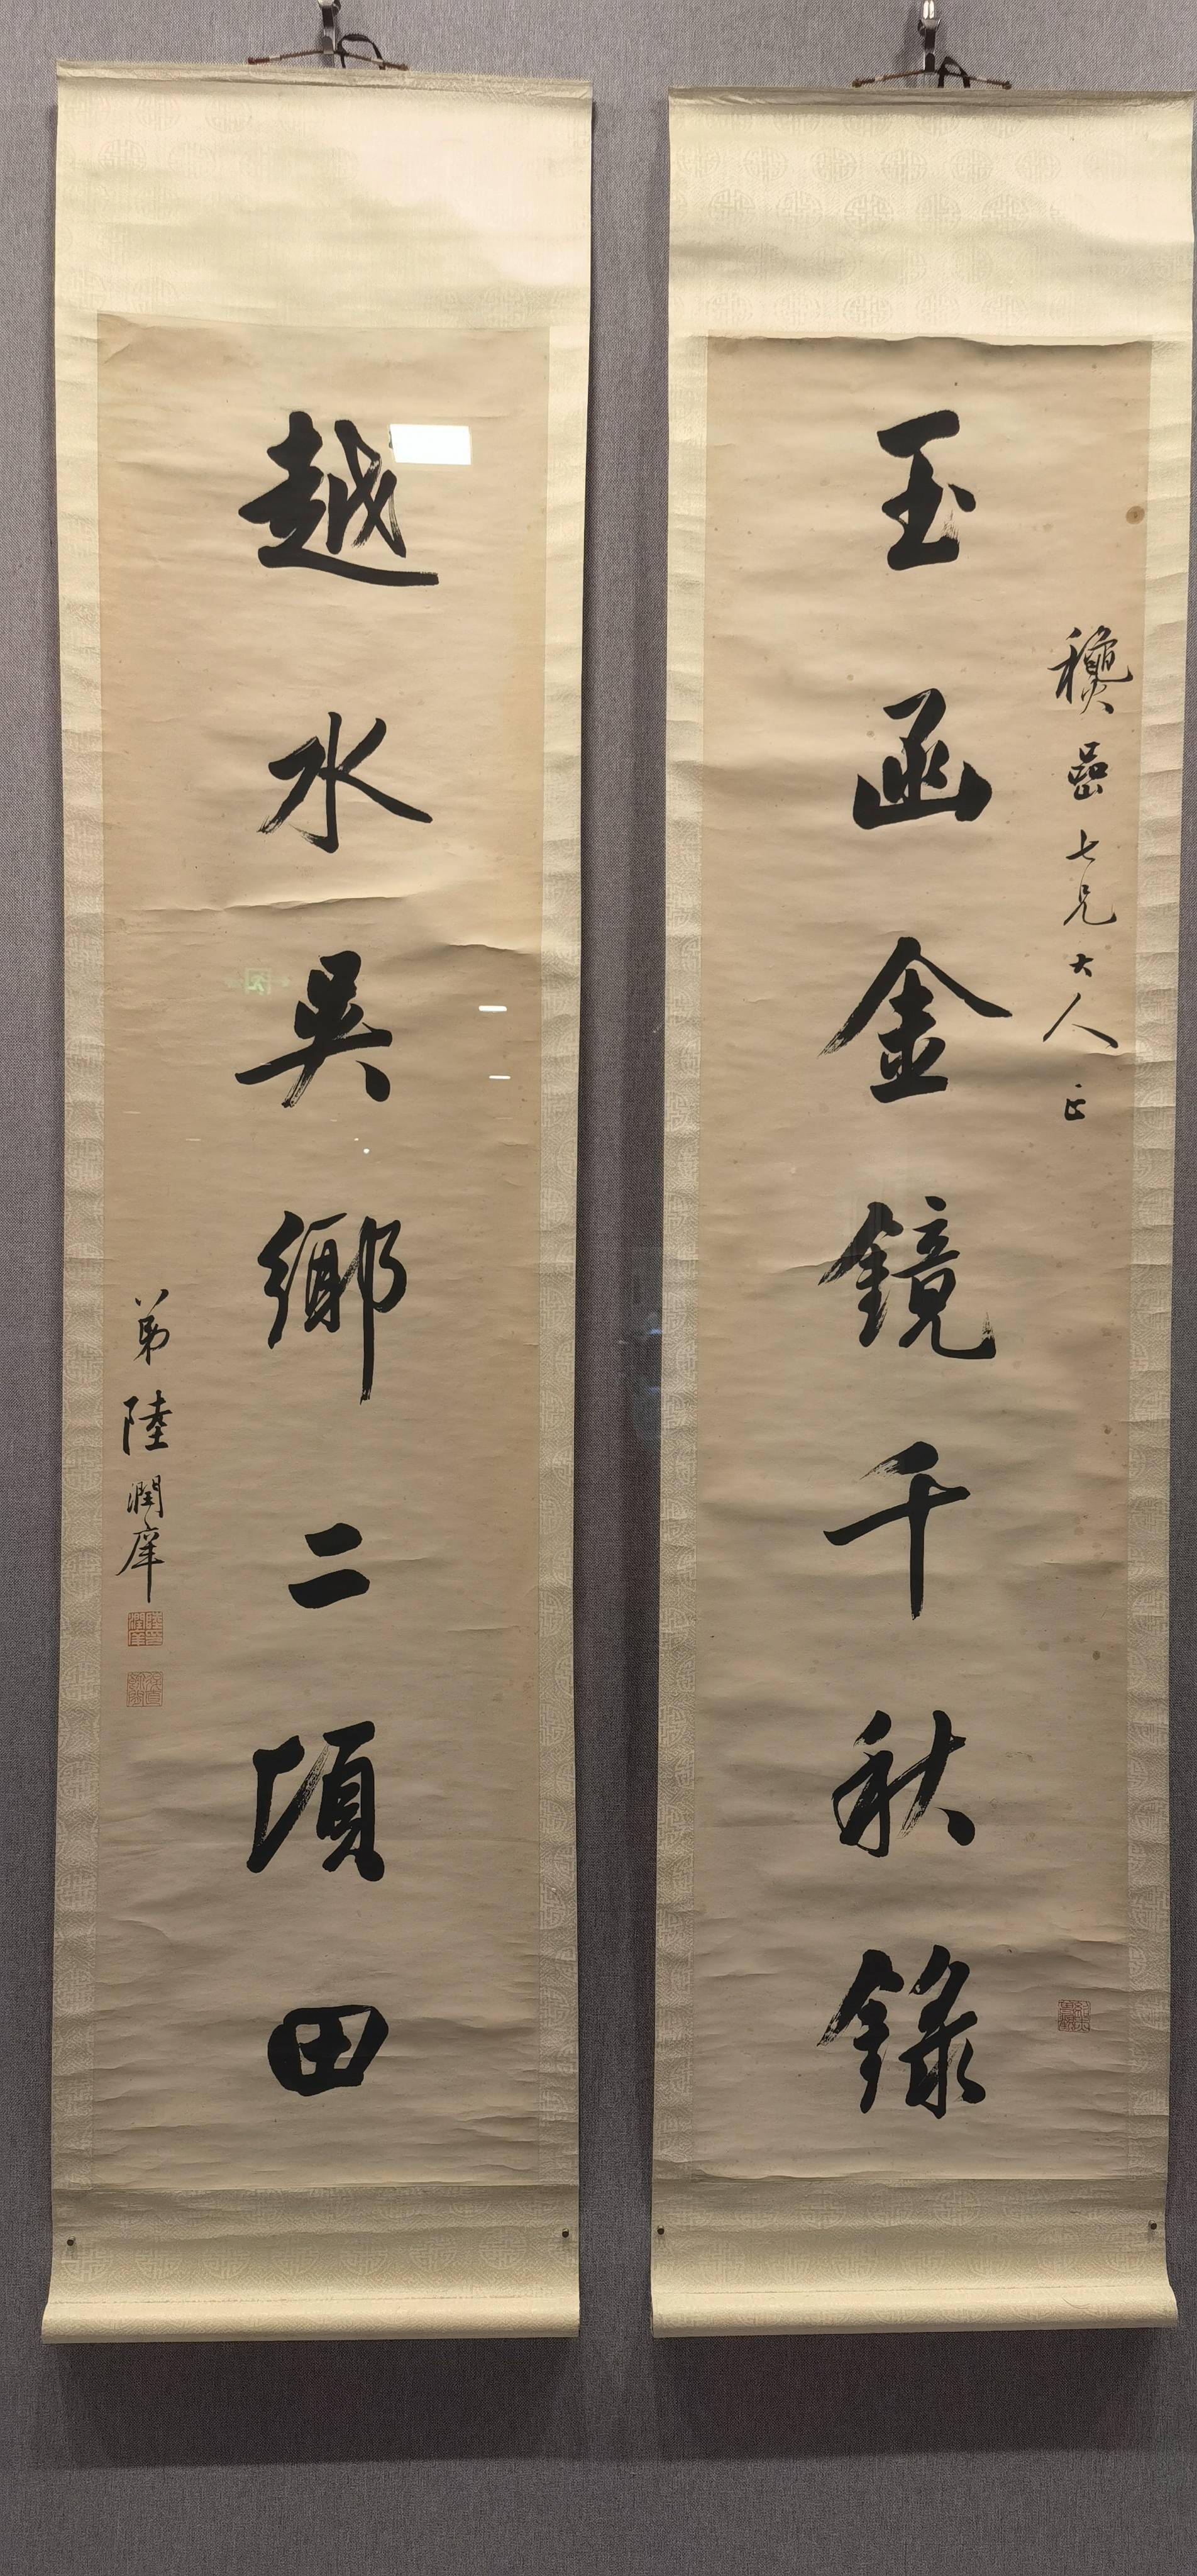 龝嵒七兄大人正
玉函金鏡千秋錄
越水吳鄉二頃田
弟陸潤庠
陸印潤庠